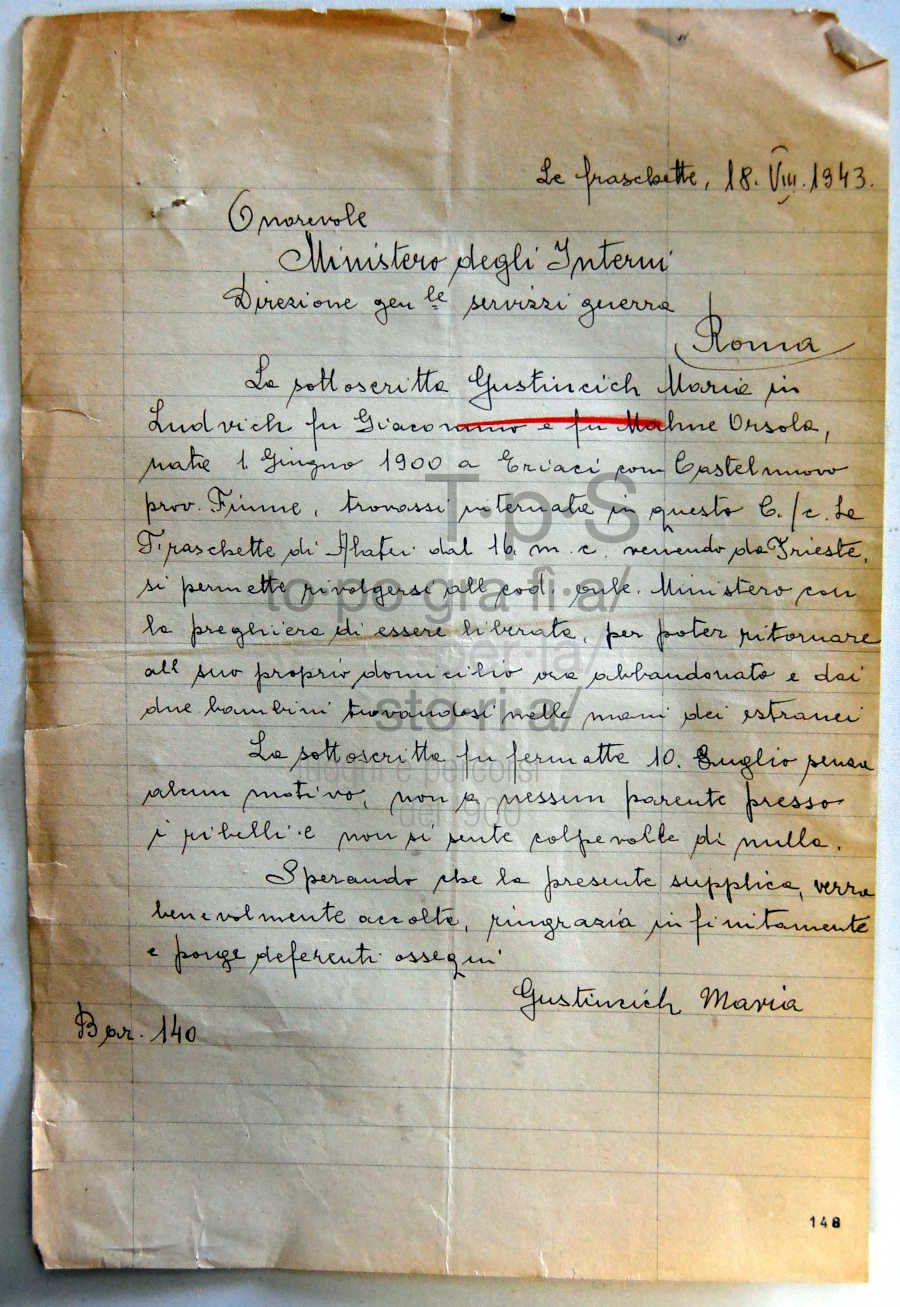 Le fraschette, 18. VIII. 1943.
Onorevole
Ministero degli Interni
Direzione gen le servizzi guerra
Roma
La sottoscritta Gustincich Maria in
Ludvich fu Giacommo e fu Mahne Orsola,
nata 1 Giugno 1900 a Eriaci com Castelnuovo
prov. Fiume, trovassi internata in questo C./c. Le
Fraschette di Alatri dal 16. m. c. venendo da Trieste,
si permette rivolgersi all cod. onle. Ministero con
la preghiera di essere liberata, per poter ritornare
all suo proprio domicilio ora abbandonato e dai
due bambini trovandosi nelle mani dei estranei
La sottoscritta fu fermatta 10. Luglio senza
alcun motivo, non a nessun parente presso
i ribelli e non si sente colpevolle di nulla.
Sperando che la presente supplica, verra
benevolmente accolta, ringrazia infinitamente
e porge deferenti ossequi
Gustincich Maria
Bar. 140
148
T·p·S
to po gra fi·a/
per·la/
sto·ri·a/
luoghi e percorsi
del 900